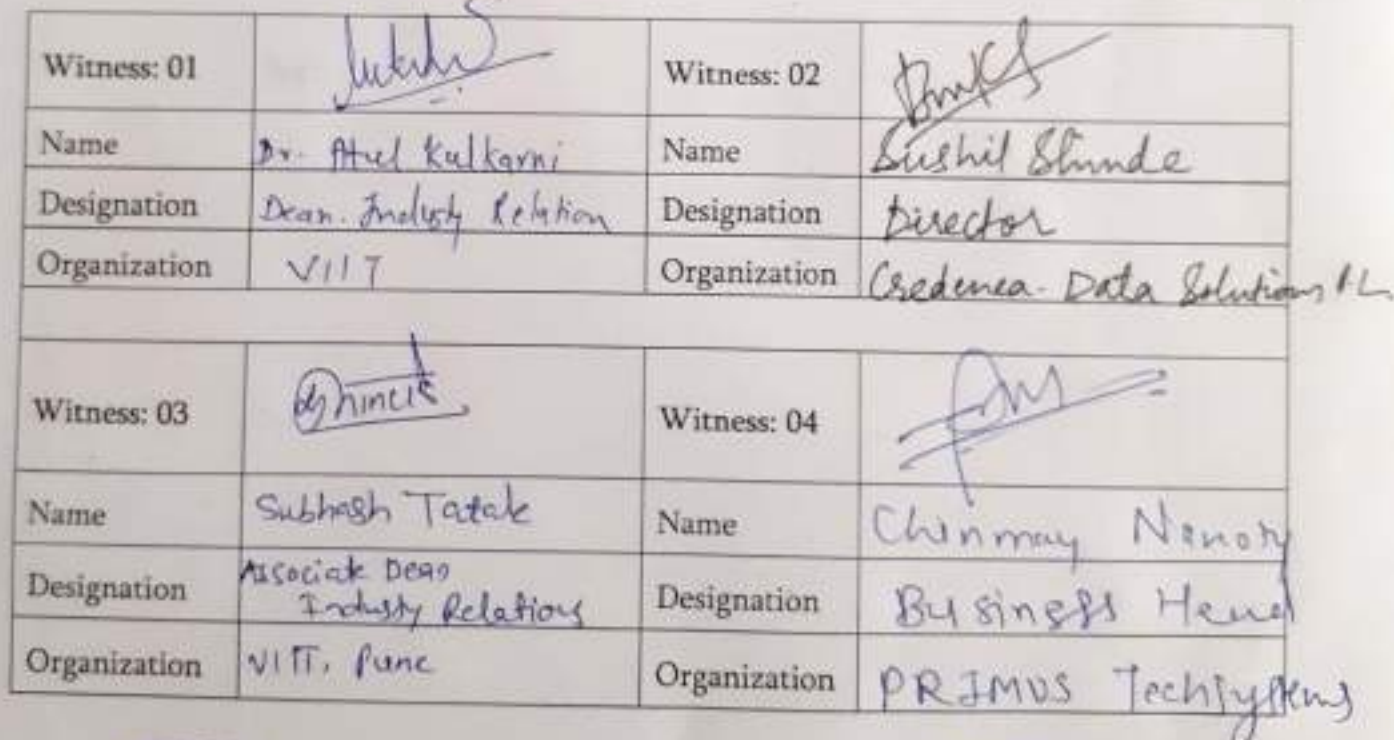 Witness: 01 Witness: 02
Name Dr. Atul Kulkarni Name Sushil Shinde
Designation Dean. Industry Relation Designation Director
Organization VIIT Organization Credenea. Data Solutions
Witness: 03 Witness: 04
Name Subhash Tatale Name Chinmay
Designation Associate Dean Designation Business Head
Industry Relations
Organization VIIT, Pune Organization PRIMUS Techsystems